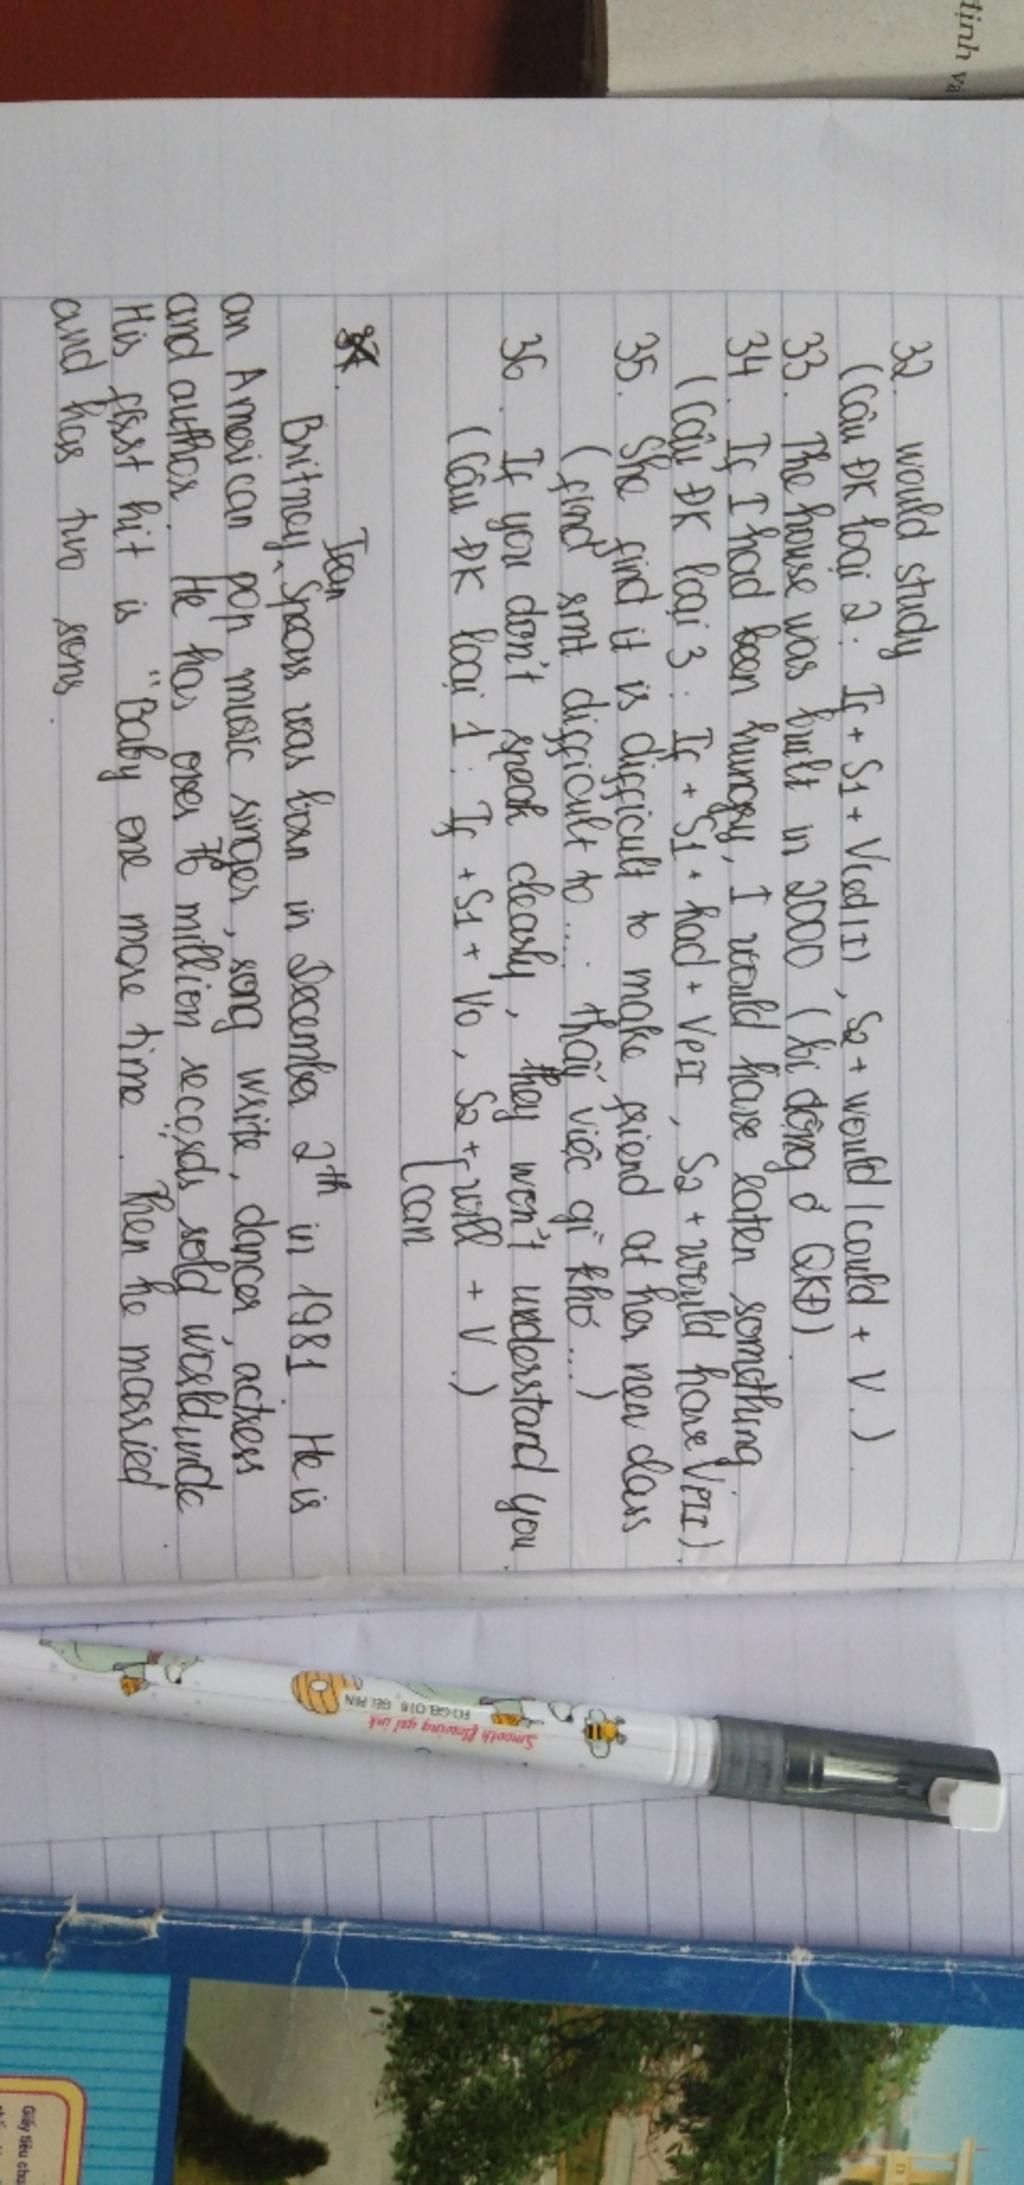 32. would study
(Câu ĐK loại 2: If + S1 + V(ed/I), S2 + would / could + V.)
33. The house was built in 2000 (bị động ở QKĐ)
34. If I had been hungry, I would have eaten something
(Câu ĐK loại 3: If + S1 + had + VPII, S2 + would have VPII)
35. She find it is difficult to make friend at her new class
(find smt difficult to .... : thấy việc gì khó ...)
36. If you don't speak clearly, they won't understand you.
(Câu ĐK loại 1: If + S1 + V0, S2 + will + V.)
can
Jean
Britney Spears was born in December 2th in 1981. He is
an American pop music singer, song write, dancer, actress
and author. He has over 76 million records sold worldwide
His first hit is "Baby one more time. Then he married
and has two sons.
định
Smooth flowing gel ink
FO-GEL016 GEL PEN
Giấy tiêu